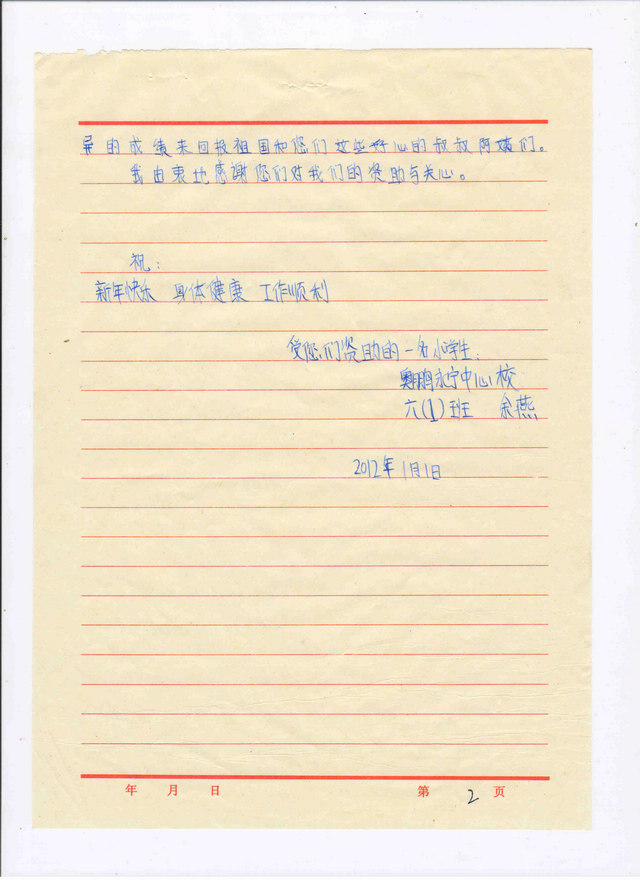 异的成绩来回报祖国和您们这些好心的叔叔阿姨们。
我由衷地感谢您们对我们的资助与关心。
祝:
新年快乐 身体健康 工作顺利
受您们资助的一名小学生:
奥鹏永宁中心校
六(1)班 余燕
2012年1月1日
年 月 日 第 2 页